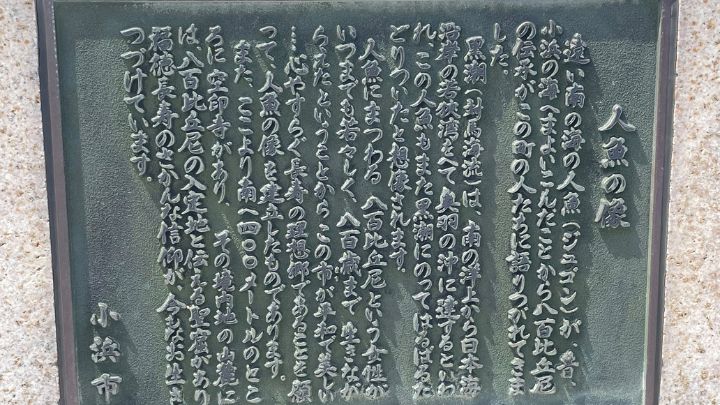 人魚の像
遠い南の海の人魚(ジュゴン)が、昔、
小浜の海へまよいこんだことから八百比丘尼
の伝承がこの町の人たちに語りつがれてきま
した。
黒潮(対馬海流)は、南の洋上から日本海
沿岸の若狭湾をへて奥羽の沖に達するといわ
れ、この人魚もまた黒潮にのってはるばるた
どりついたと想像されます。
人魚にまつわる 八百比丘尼という女性が
いつまでも若々しく、八百歳まで 生きなが
らえたということから、この市が平和で美しい
…心やすらぐ長寿の理想郷であることを願
って、人魚の像を建立したものであります。
また、ここより南へ四〇〇メートルのとこ
ろに 空印寺があり、 その境内地の山麓に
は、八百比丘尼の入定地と伝える聖窟があり
福徳長寿のさかんな信仰が、今もなお生き
つづけています。
小浜市